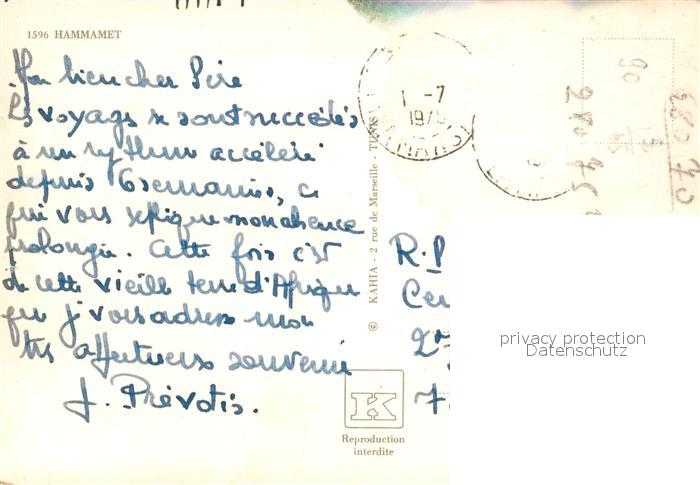 1596 HAMMAMET
Mon bien cher Père
Les voyages se sont succédés
à un rythme accéléré
depuis 6 semaines, ce
qui vous explique mon absence
prolongée. Cette fois c'est
de cette vieille terre d'Afrique
que j' vous adresse mon
très affectueux souvenir
J. Prévotis.
1 -7
197
© KAHIA - 2 rue de Marseille - TUNIS
R.P
Ce
27
7
K
Reproduction
interdite
privacy protection
Datenschutz
90
280 75
280 70